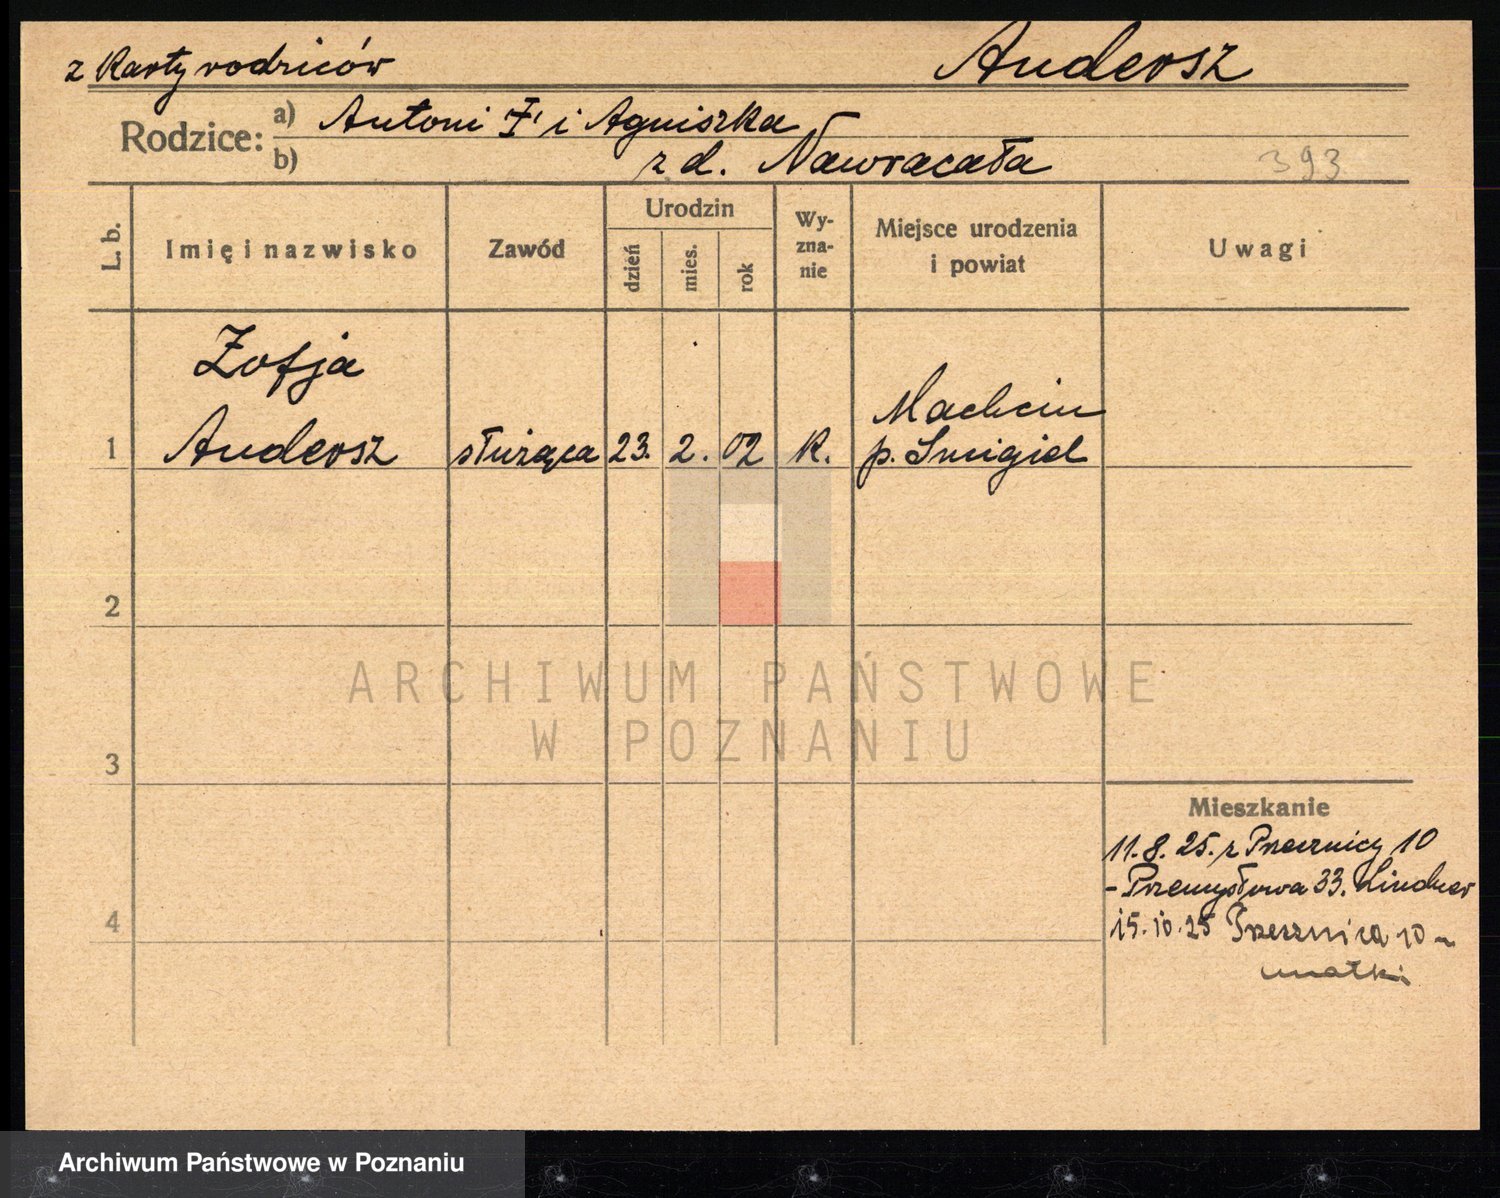 z karty rodziców
Andersz
Rodzice:
a) Antoni † i Agniszka
b) z d. Nawracała
393
L. b.
Imię i nazwisko
Zawód
Urodzin
dzień
mies.
rok
Wy-
zna-
nie
Miejsce urodzenia
i powiat
Uwagi
Zofja
1 Andersz służąca 23. 2. 02 K. Machcin
p. Śmigiel
2
3
4
Mieszkanie
11.8.25. z Przecznicy 10
- Przemysłowa 33. Lindner
15.10.25 Przecznica 10 -
matki
ARCHIWUM PAŃSTWOWE
W POZNANIU
Archiwum Państwowe w Poznaniu